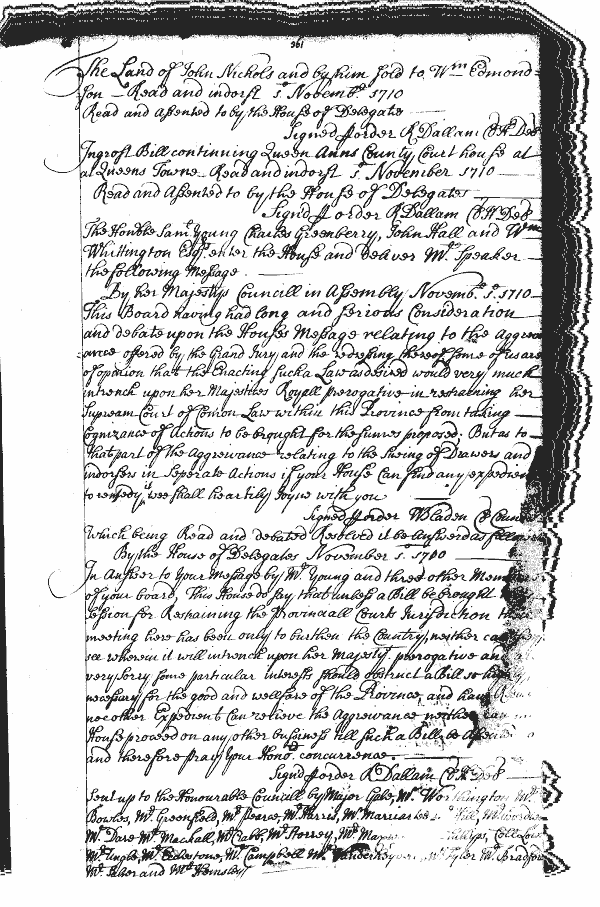 361
The Land of John Nichols and by him sold to Wm Edmond=
son Read and indorst 5t. Novembr. 1710
Read and assented to by the House of Delegates
Signed p order R Dallam Cl H Del
Ingrost Bill continuing Queen Anns County Court house at
at Queens Towne Read and indorst 5t. November 1710
Read and Assented to by the House of Delegates
Signd p order R Dallam Cl H Del
The Honble Saml Young Charles Greenberry, John Hall and Wm
Whittington Esqrs. enter the House and deliver Mr. Speaker
the following Message.
By her Majestys Councill in Assembly Novembr. 5t. 1710
This Board having had long and serious Consideration
and debate upon the Houses Message relating to the Aggrea
=ance offered by the Grand Jury and the redressing thereof some of us are
of opinion that the Enacting such a Law as desired would very much
intrench upon her Majesties Royall prerogative in restraining her
Supream Court of Comon Law within this Province from taking
Cognizance of Actions to be brought for the sumes proposed. But as to
that part of the Aggrewance relating to the Sueing of Drawers and
indorsers in Seperate Actions if your House Can find any expedient
to remedy it wee shall heartily Joyne with you
Signed p order W Bladen Cl Council
Which being Read and debated Resolved it be answered as follows
By the House of Delegates November 5. 1710
In Answer to Your Message by Mr. Young and three other Members
of your board, This House do say that unless a Bill be brought
Session for Restraining the Provinciall Courts Jurysdiction
meeting here has been only to burthen the Country, neither can
see wherein it will intrench upon her Majestys. prerogative and
very sorry some particular interests should obstruct a Bill so highly
necessary for the good and wellfare of the Province, and have
noe other Expedient Can relieve the Aggrewance neither
House proceed on any other business till such a Bill be
and therefore pray Your Honrs. concurrence.
Signd p order R Dallam Cl H Del
Sent up to the Honourable Councill by Major Gale, Mr. Worthington Mr.
Bowles, Mr. Greenfield, Mr. Pearce, Mr. Harris, Mr. Marriartee
Mr. Dare Mr. Mackall, Mr. Crabb, Mr. Storrey, Mr. Phillips,
Mr. Ungle, Mr. Eccleston, Mr. Campbell Mr. Vanderheyden Mr. Tyler Mr. Bradford
Mr. and Mr. Hemsley